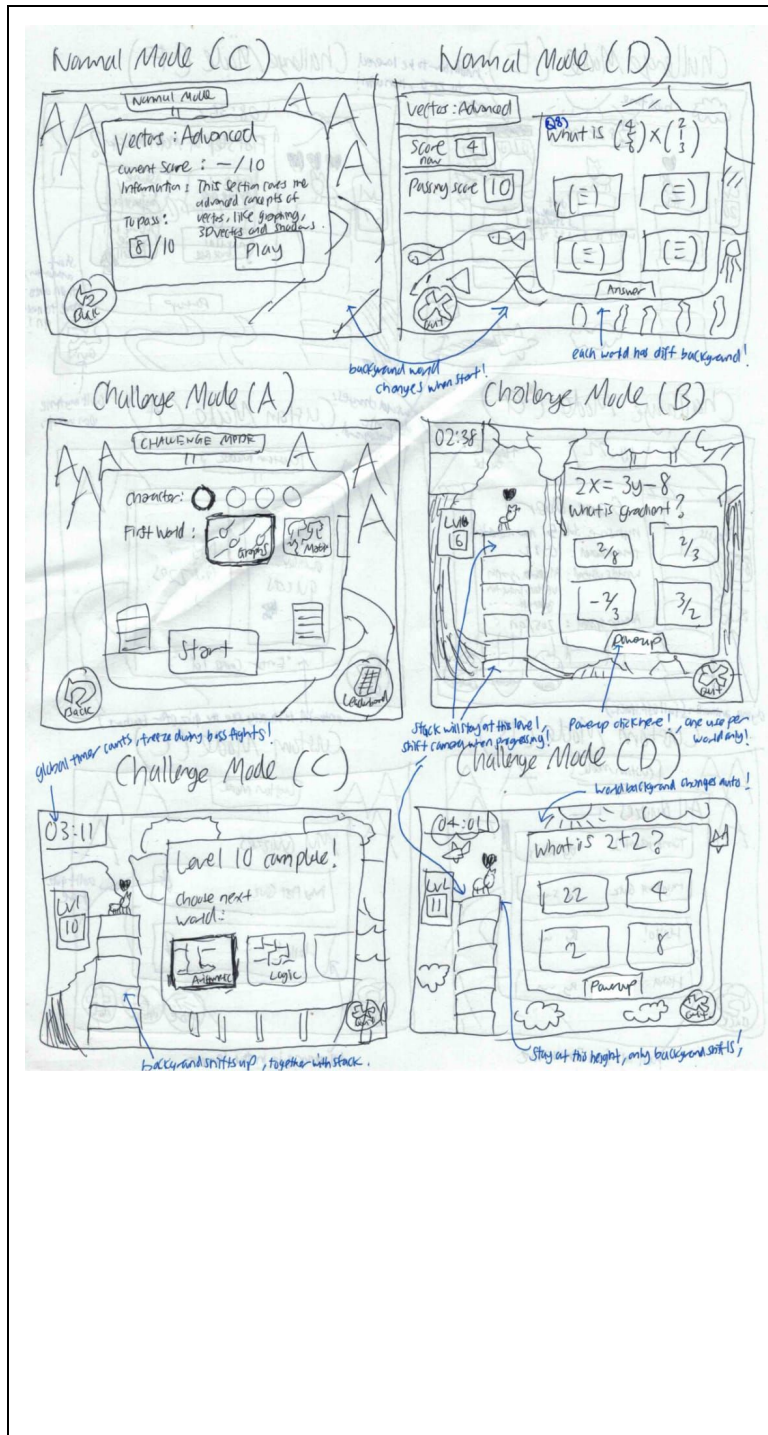 Normal Mode (C)
Normal Mode
Vectors : Advanced
current score : - / 10
Information : This section covers the
advanced concepts of
vectors, like graphing,
3D vectors and shadows.
To pass :
8 / 10
Play
Back
Normal Mode (D)
Vectors : Advanced
Score
now
4
Passing score 10
Q8)
What is × (2 1 3)
Answer
Quit
background world
changes when start!
each world has diff background!
Challenge Mode (A)
CHALLENGE MODE
Character :
First World :
Graphs
Start
Back
Leaderboard
Challenge Mode (B)
02:38
Lvl
6
2x = 3y - 8
What is gradient?
2/8
2/3
-2/3
3/2
Powerup
Quit
Stack will stay at this level,
shift camera when progressing!
Powerup click here!, one use per
world only!
global timer counts, freeze during boss fights!
Challenge Mode (C)
03:11
Lvl
10
Level 10 complete!
choose next
world :
Arithmetic
Logic
Quit
background shifts up, together with stack.
Challenge Mode (D)
World background changes auto!
04:01
Lvl
11
What is 2+2?
22
4
2
8
Powerup
Quit
Stay at this height, only background shifts!